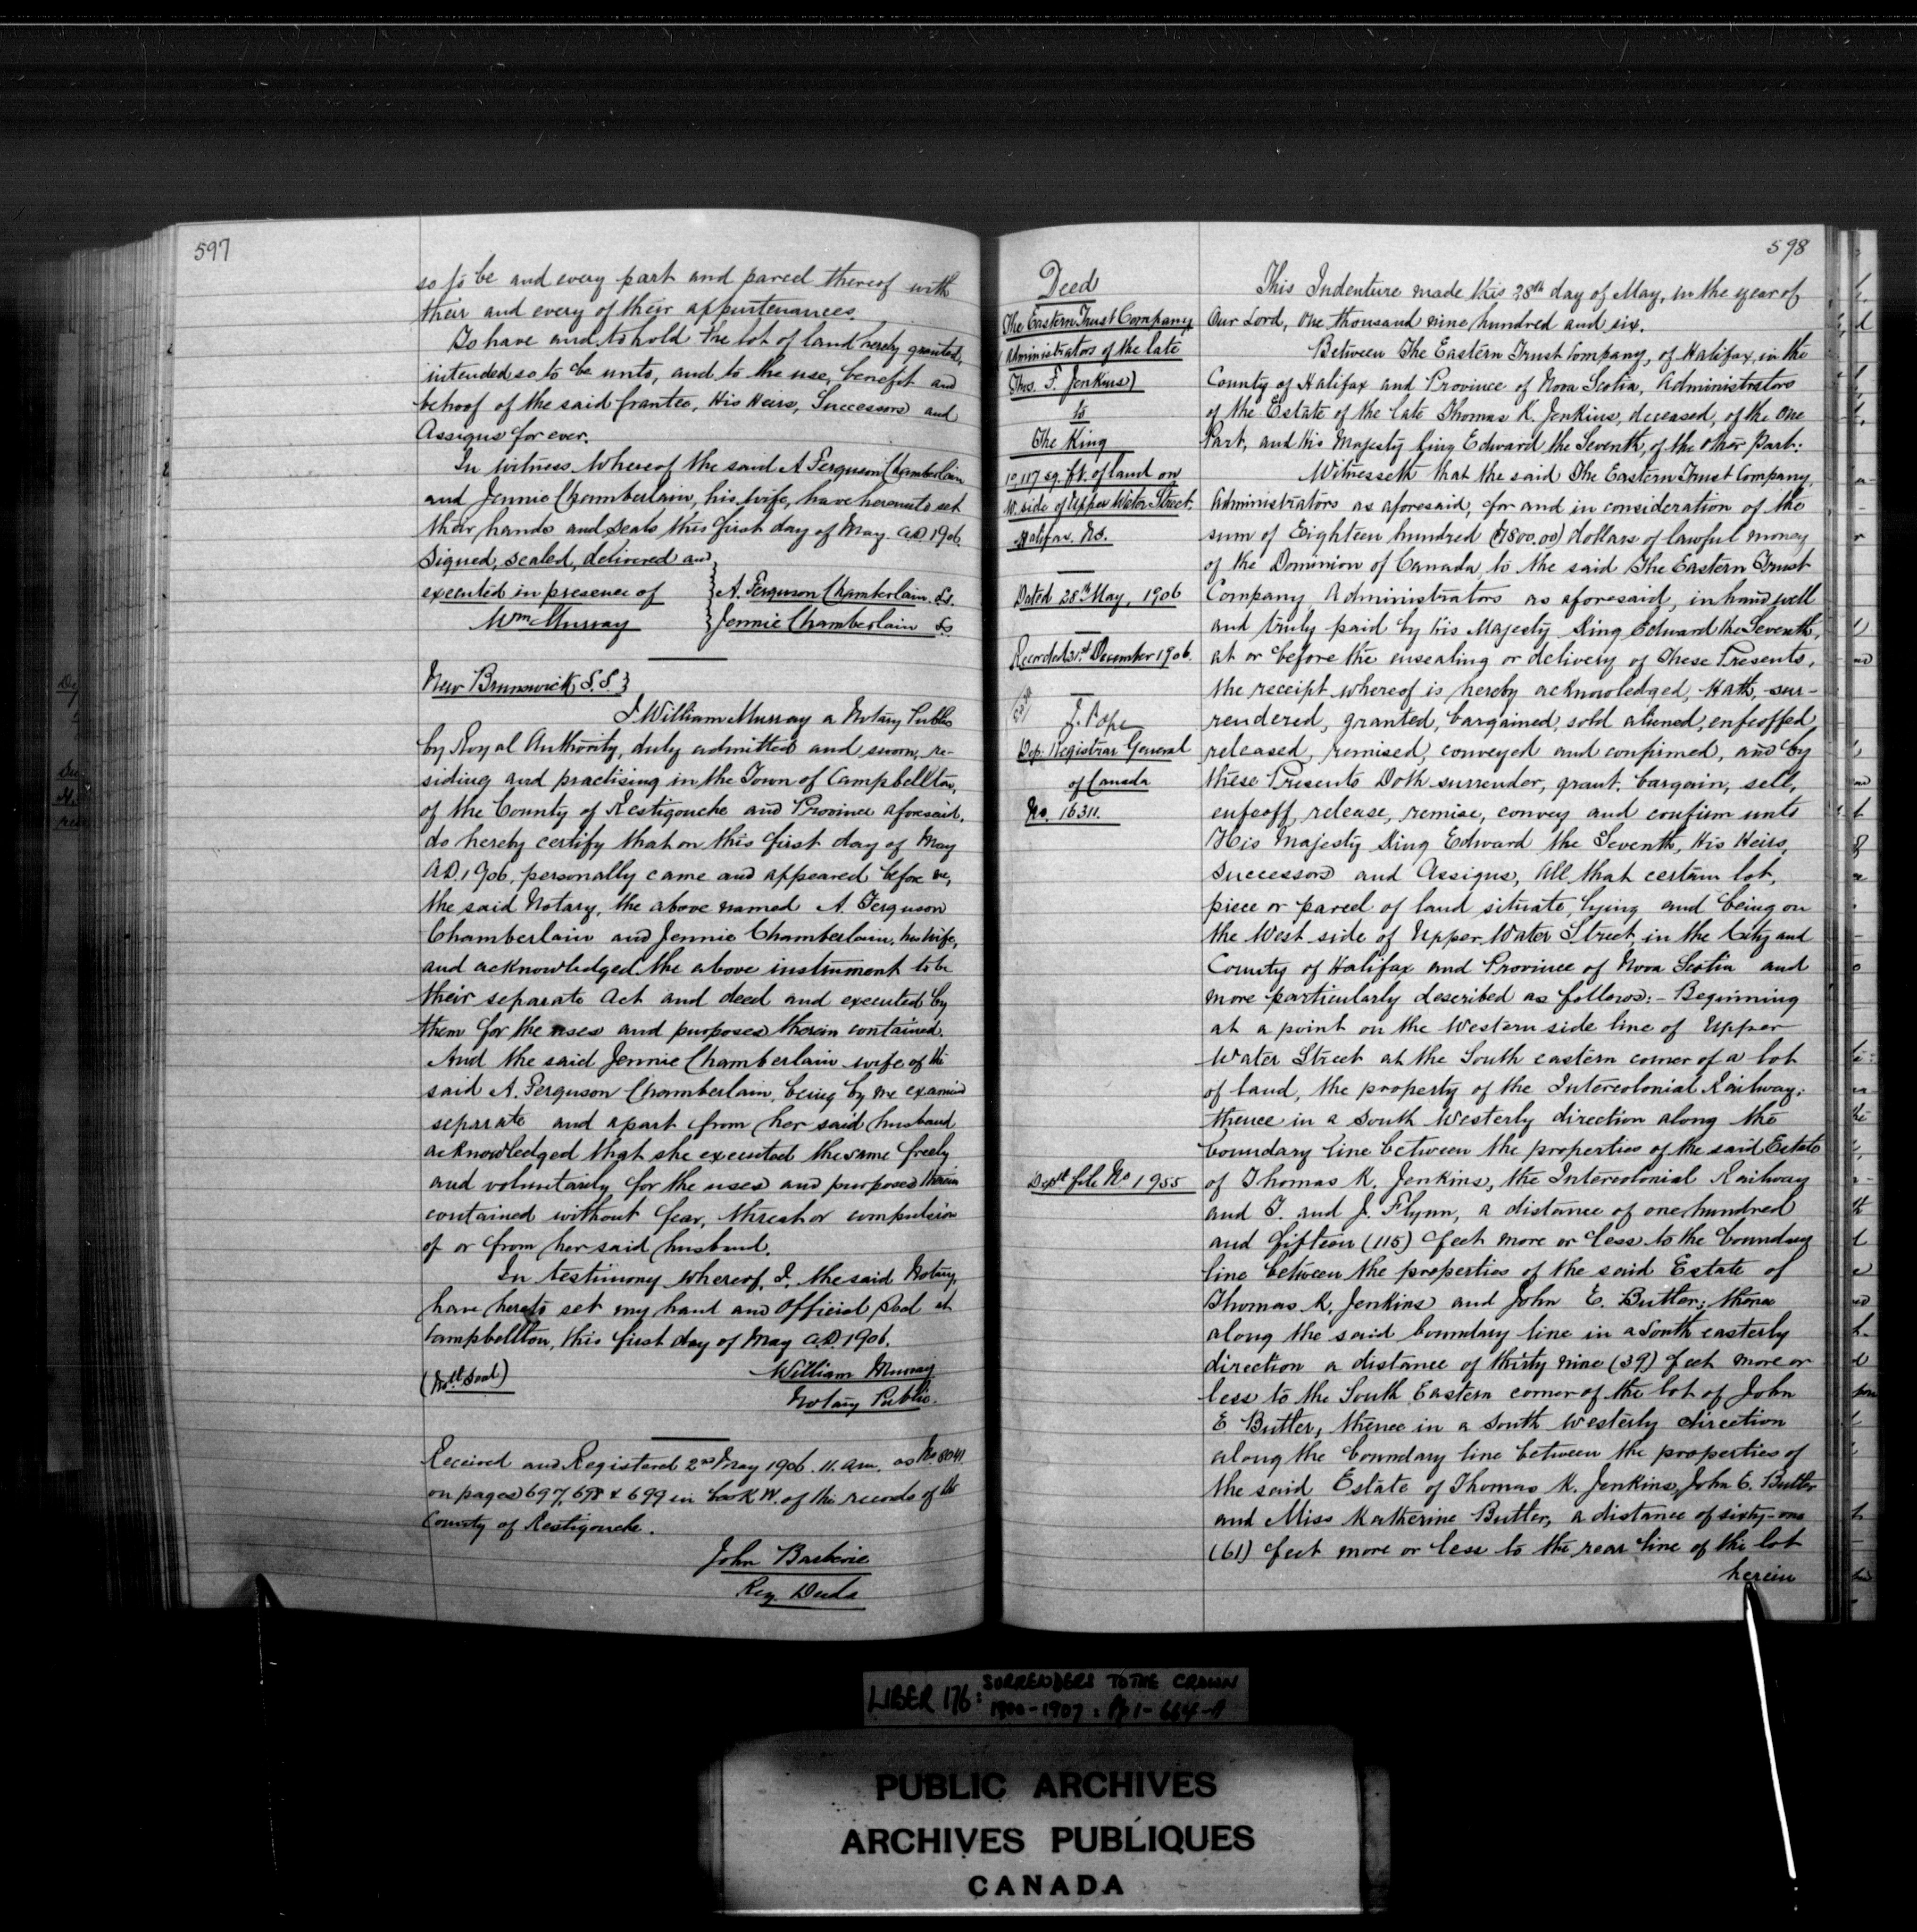 597
so to be and every part and parcel thereof with
their and every of their appurtenances.
To have and to hold the lot of land hereby granted,
intended so to be unto, and to the use, benefit and
behoof of the said Grantee, His Heirs, Successors and
Assigns for ever.
In witness whereof the said A Ferguson Chamberlain
and Jennie Chamberlain, his wife, have hereunto set
their hands and seals this first day of May A.D. 1906.
Signed, sealed, delivered and
executed in presence of } A. Ferguson Chamberlain Ls.
Wm Murray } Jennie Chamberlain Ls
New Brunswick S.S.}
I William Murray a Notary Public
by Royal Authority, duly admitted and sworn, re-
siding and practising in the Town of Campbellton,
of the County of Restigouche and Province aforesaid,
do hereby certify that on this first day of May
A.D. 1906, personally came and appeared before me,
the said Notary, the above named A. Ferguson
Chamberlain and Jennie Chamberlain, his wife,
and acknowledged the above instrument to be
their separate Act and deed and executed by
them for the uses and purposes therein contained.
And the said Jennie Chamberlain wife of the
said A. Ferguson Chamberlain, being by me examined
separate and apart from her said husband
acknowledged that she executed the same freely
and voluntarily for the uses and purposes therein
contained without fear, threat or compulsion
of or from her said husband.
In testimony whereof, I, the said Notary,
have hereto set my hand and Official Seal at
Campbellton, this first day of May A.D. 1906.
(Notl Seal) William Murray
Notary Public.
Received and Registered 2nd May 1906. 11. a.m. as No 8041
on pages 697, 698 & 699 in book W. of the records of the
County of Restigouche.
John Barberie
Reg. Deeds
598
Deed
The Eastern Trust Company
(Administrators of the late
Thos. F. Jenkins)
to
The King
10,117 sq. ft. of land on
W. side of Upper Water Street.
Halifax. N.S.
Dated 28th May, 1906
Recorded 31st December 1906.
J. Pope
Dep. Registrar General
of Canada
No. 16311.
Dept. file No 1955
This Indenture made this 28th day of May, in the year of
Our Lord, One thousand nine hundred and six.
Between The Eastern Trust Company, of Halifax, in the
County of Halifax and Province of Nova Scotia, Administrators
of the Estate of the late Thomas K. Jenkins, deceased, of the One
Part, and His Majesty King Edward the Seventh, of the Other Part:
Witnesseth that the said The Eastern Trust Company,
Administrators as aforesaid, for and in consideration of the
sum of Eighteen hundred ($1800.00) dollars of lawful money
of the Dominion of Canada, to the said The Eastern Trust
Company Administrators as aforesaid, in hand well
and truly paid by His Majesty King Edward the Seventh,
at or before the ensealing or delivery of these Presents,
the receipt whereof is hereby acknowledged, Hath, sur-
rendered, granted, bargained, sold aliened, enfeoffed
released, remised, conveyed and confirmed, and by
these Presents Doth surrender, grant, bargain, sell,
enfeoff, release, remise, convey and confirm unto
His Majesty King Edward the Seventh, His Heirs,
Successors and Assigns, All that certain lot,
piece or parcel of land situate, lying and being on
the West side of Upper Water Street, in the City and
County of Halifax and Province of Nova Scotia and
more particularly described as follows:- Beginning
at a point on the Western side line of Upper
Water Street at the South eastern corner of a lot
of land, the property of the Intercolonial Railway;
thence in a South Westerly direction along the
boundary line between the properties of the said Estate
of Thomas K. Jenkins, the Intercolonial Railway
and T. and J. Flynn, a distance of one hundred
and fifteen (115) feet more or less to the boundary
line between the properties of the said Estate of
Thomas K. Jenkins and John E. Butler; thence
along the said boundary line in a South easterly
direction a distance of thirty nine (39) feet more or
less to the South Eastern corner of the lot of John
E Butler, thence in a South Westerly direction
along the boundary line between the properties of
the said Estate of Thomas K. Jenkins, John E. Butler
and Miss Katherine Butler, a distance of sixty-one
(61) feet more or less to the rear line of the lot
herein
LIBER 176: SURRENDERS TO THE CROWN
1900-1907: Pp 1-664-A
PUBLIC ARCHIVES
ARCHIVES PUBLIQUES
CANADA